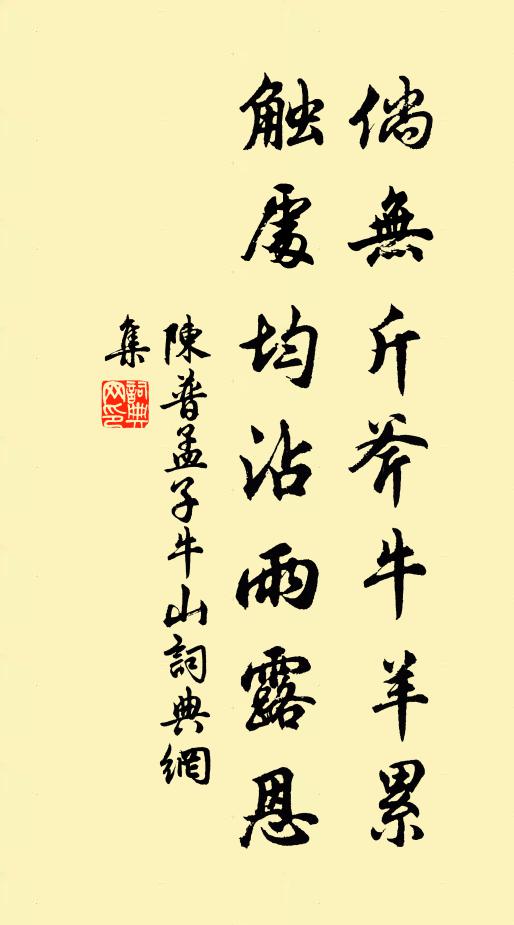 倘無斤斧牛羊累
触處均沾雨露恩
陳普孟子牛山詞典網
集
詞典
网印